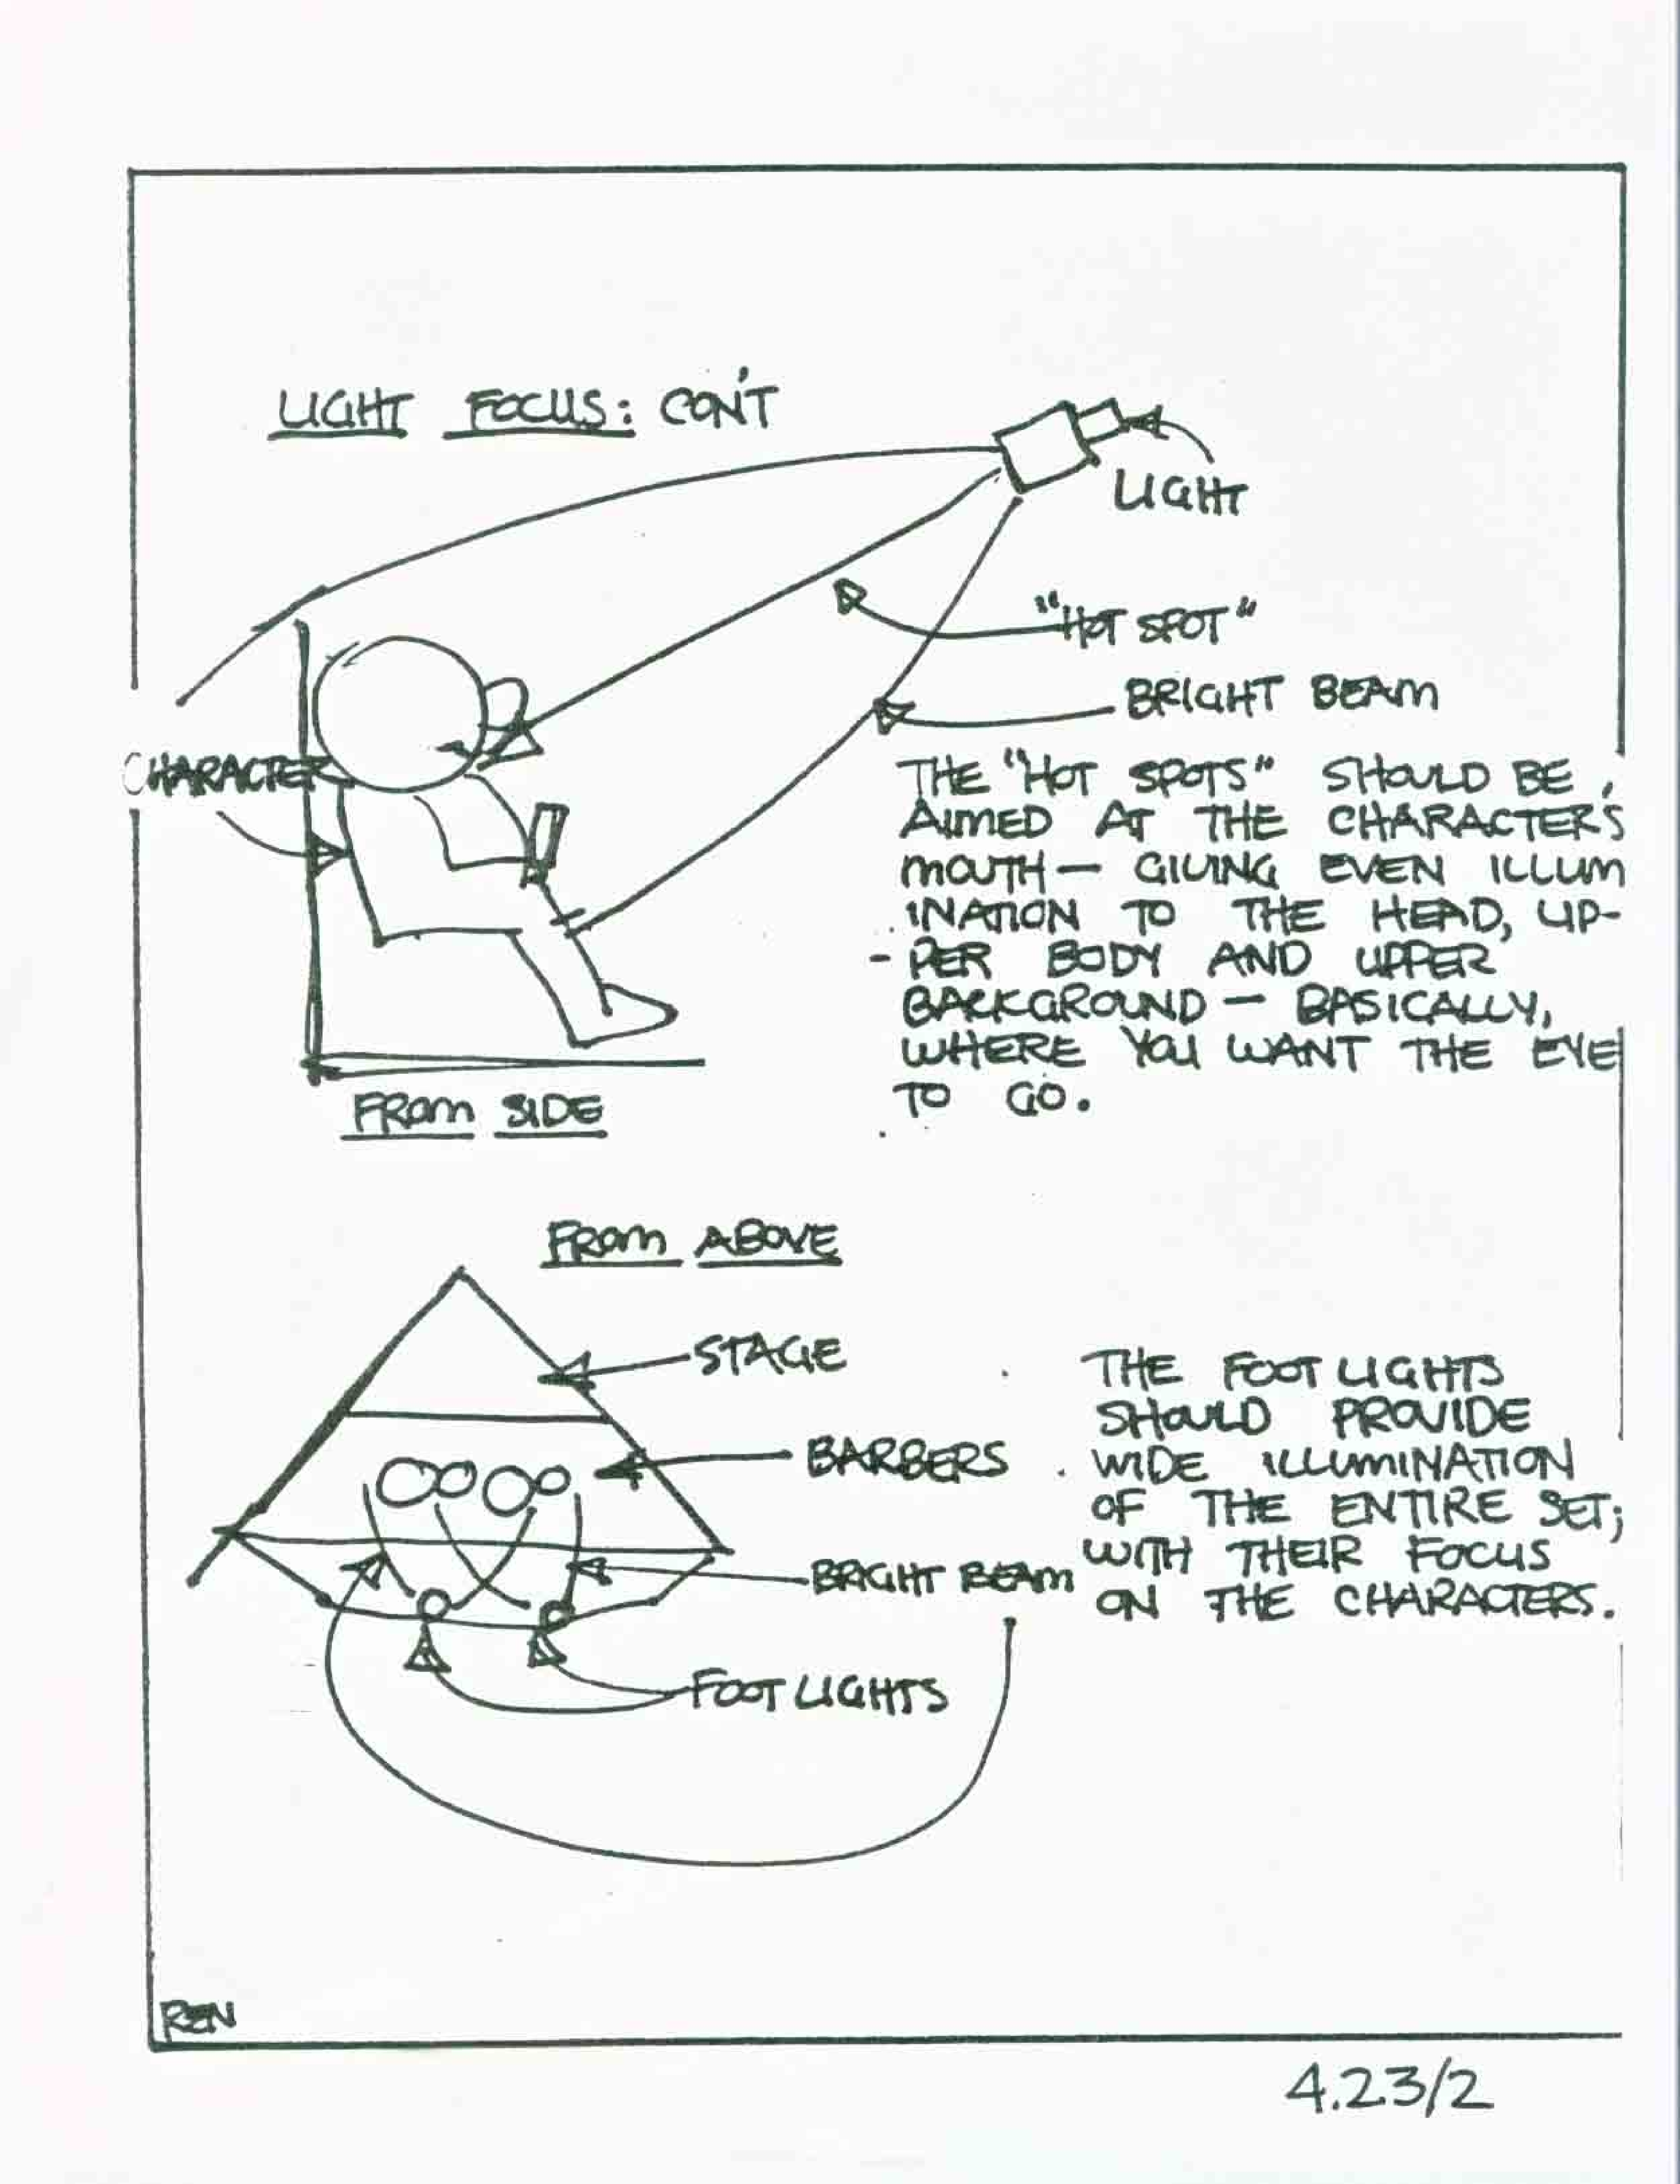 LIGHT FOCUS: CON'T
LIGHT
"HOT SPOT"
BRIGHT BEAM
CHARACTER
THE "HOT SPOTS" SHOULD BE
AIMED AT THE CHARACTER'S
MOUTH — GIVING EVEN ILLUM
INATION TO THE HEAD, UP-
-PER BODY AND UPPER
BACKGROUND — BASICALLY,
WHERE YOU WANT THE EYE
TO GO.
FROM SIDE
FROM ABOVE
STAGE
BARBERS
BRIGHT BEAM
FOOT LIGHTS
THE FOOT LIGHTS
SHOULD PROVIDE
WIDE ILLUMINATION
OF THE ENTIRE SET;
WITH THEIR FOCUS
ON THE CHARACTERS.
REN
4.23/2